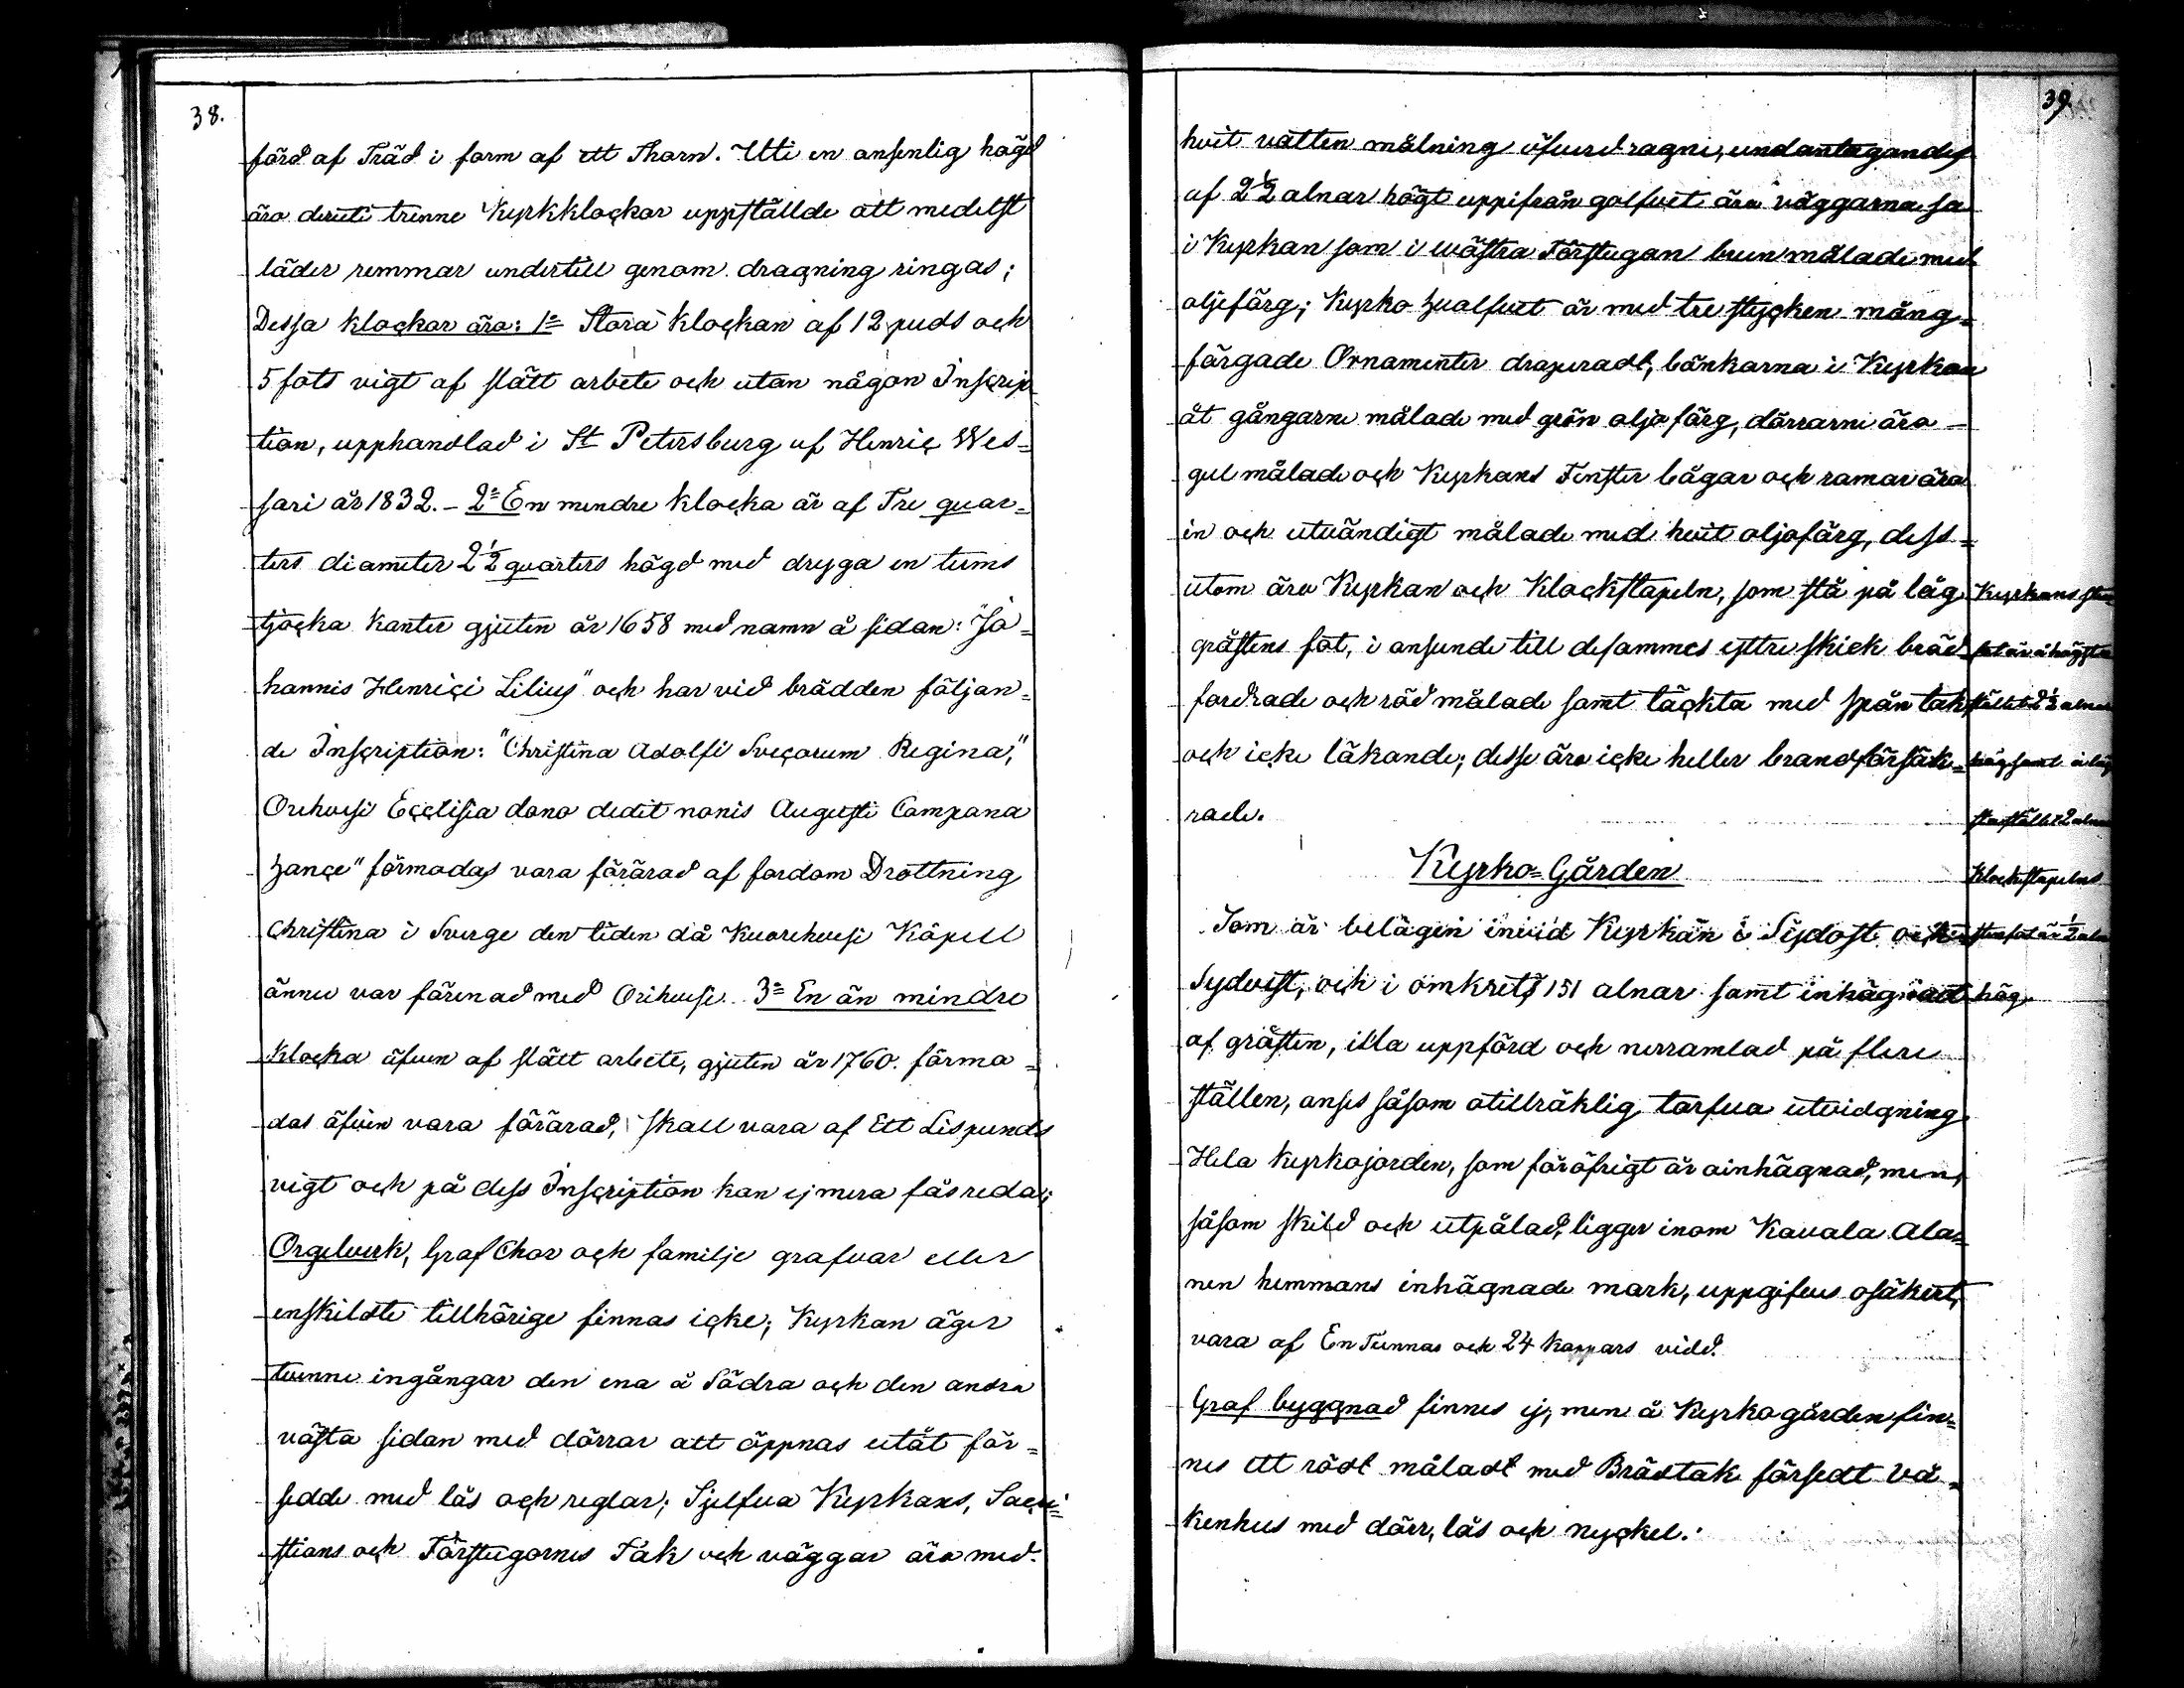 38.
förd af Träd i form af ett Thorn. Uti en ansenlig högd
äro deruti trenne Kyrkklockor uppställde att medelst
läder remmar undertill genom dragning ringas;
Dessa klockor äro: 1o Stora klockan af 12 puds och
5 fots vigt af slätt arbete och utan någon Inscrip
tion, upphandlad i St Petersburg af Henric Wes-
sari år 1832. – 2o En mindre klocka är af Tre quar-
ters diameter 2½ quarters högd med dryga en tums
tjocka kanter gjuten år 1658 med namn å sidan: "Jo-
hannis Henrici Lilius" och har vid brädden följan-
de Inscription: "Christina Adolfi Svecorum Regina,"
Orehvesi Ecclisia dono dedit nonis Augusti Campana
hance" förmodas vara förärad af fordom Drottning
Christina i Sverge den tiden då Kuorehvesi Kapell
ännu var förenad med Orihvesi. 3o En än mindre
Klocka äfven af slätt arbete, gjuten år 1760. förmo-
das äfven vara förärad, skall vara af Ett Lispunds
vigt och på dess Inscription kan ej mera fås reda;
Orgelverk, Graf Chor och familje grafvar eller
enskildte tillhörige finnas icke; Kyrkan äger
tvenne ingångar den ena å Södra och den andra
västa sidan med dörrar att öppnas utåt för-
sedde med lås och reglar; Sjelfva Kyrkans, Sacri-
stians och Förstugornes Tak och väggar äro med
39.
hvit vatten målning öfverdragne, undantagandes
af 2½ alnar högt uppifrån golfvet äro väggarna så
i Kyrkan som i wästra Förstugan brun målade med
oljefärg; Kyrko hvalfvet är med tre stycken mång-
färgade Ornamenter draperadt, bänkarna i Kyrkan
åt gångarne målade med grön oljo färg, dörrarne äro
gul målade och Kyrkans Fenster bågar och ramar äro
in och utvändigt målade med hvit oljofärg, dess-
utom äro Kyrkan och Klockstapeln, som stå på låg
gråstens fot, i anseende till desammes yttre skick bräd
fordrade och röd målade samt täckta med spån tak
och icke läkande; desse äro icke heller brandförsäk-
rade.
Kyrkans sten
fot är å högsta
stället 2½ alnar
hög samt å läg
sta stället 2 alnar
Klockstapelns
stenfot är ½ aln
hög.
Kyrko-Gården
Som är belägen invid Kyrkan i Sydost och
Sydvest, och i omkrets 151 alnar samt inhägnad
af gråsten, illa uppförd och nerramlad på flere
ställen, anses såsom otillräklig tarfva utvidgning
Hela Kyrkojorden, som föröfrigt är oinhägnad, men,
såsom skild och utpålad, ligger inom Kavala Ala-
nen hemmans inhägnade mark, uppgifves osäkert,
vara af En Tunnas och 24 Kappars vidd.
Graf byggnad finnes ej, men å Kyrkogården fin-
nes ett rödt måladt med Brädtak försedt Vå-
kenhus med dörr, lås och nyckel.